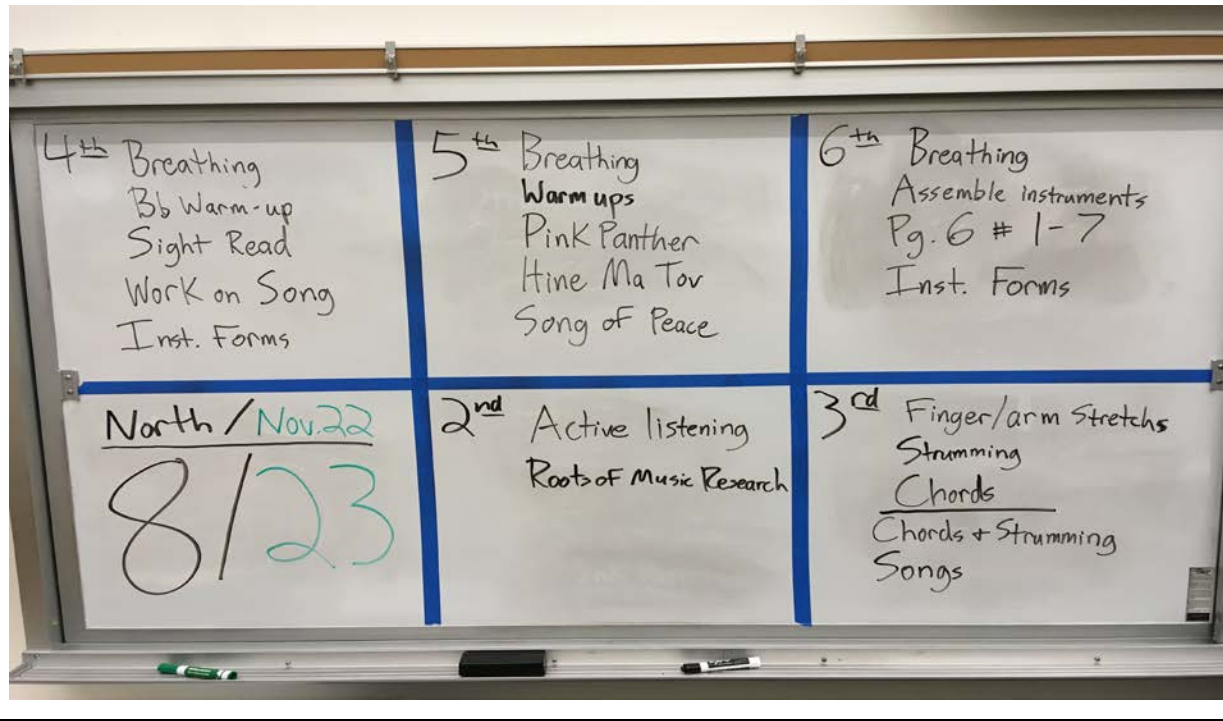 4th Breathing
Bb Warm-up
Sight Read
Work on Song
Inst. Forms
5th Breathing
Warm ups
Pink Panther
Hine Ma Tov
Song of Peace
6th Breathing
Assemble instruments
Pg. 6 # 1-7
Inst. Forms
North / Nov. 22
8/23
2nd Active listening
Roots of Music Research
3rd Finger/arm Stretchs
Strumming
Chords
Chords + Strumming
Songs